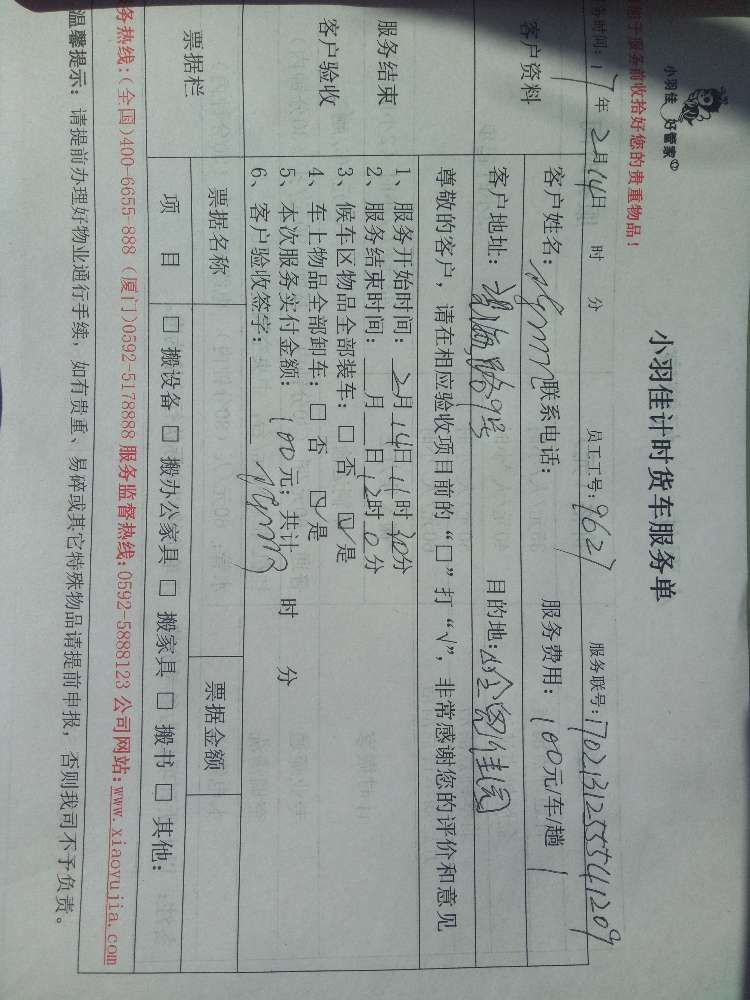 小羽佳 好管家
能于服务前收拾好您的贵重物品！
小羽佳计时货车服务单
务时间：17年2月14日 时 分 员工工号：9627 服务联号：1702131255541209
客户资料
客户姓名： 联系电话： 服务费用：100元/车/趟
客户地址： 路9号 目的地： 佳园
尊敬的客户，请在相应验收项目前的“□”打“√”，非常感谢您的评价和意见
服务结束
客户验收
1、服务开始时间：2月14日11时30分
2、服务结束时间：__月__日12时0分
3、候车区物品全部装车：□ 否 ☑ 是
4、车上物品全部卸车：□ 否 ☑ 是
5、本次服务实付金额：100元；共计 时 分
6、客户验收签字：
票据栏
票据名称 票据金额
项 目 □ 搬设备 □ 搬办公家具 □ 搬家具 □ 搬书 □ 其他：
务热线：(全国)400-6655-888 (厦门)0592-5178888 服务监督热线：0592-5888123 公司网站：www.xiaoyujia.com
温馨提示：请提前办理好物业通行手续，如有贵重、易碎或其它特殊物品请提前申报，否则我司不予负责。